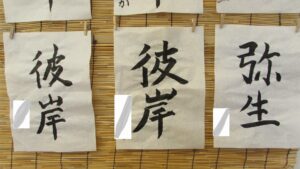 彼岸
彼岸
弥生